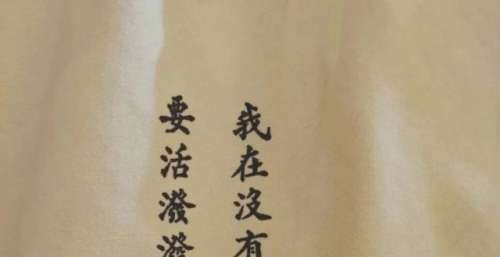 我在沒有
要活潑潑